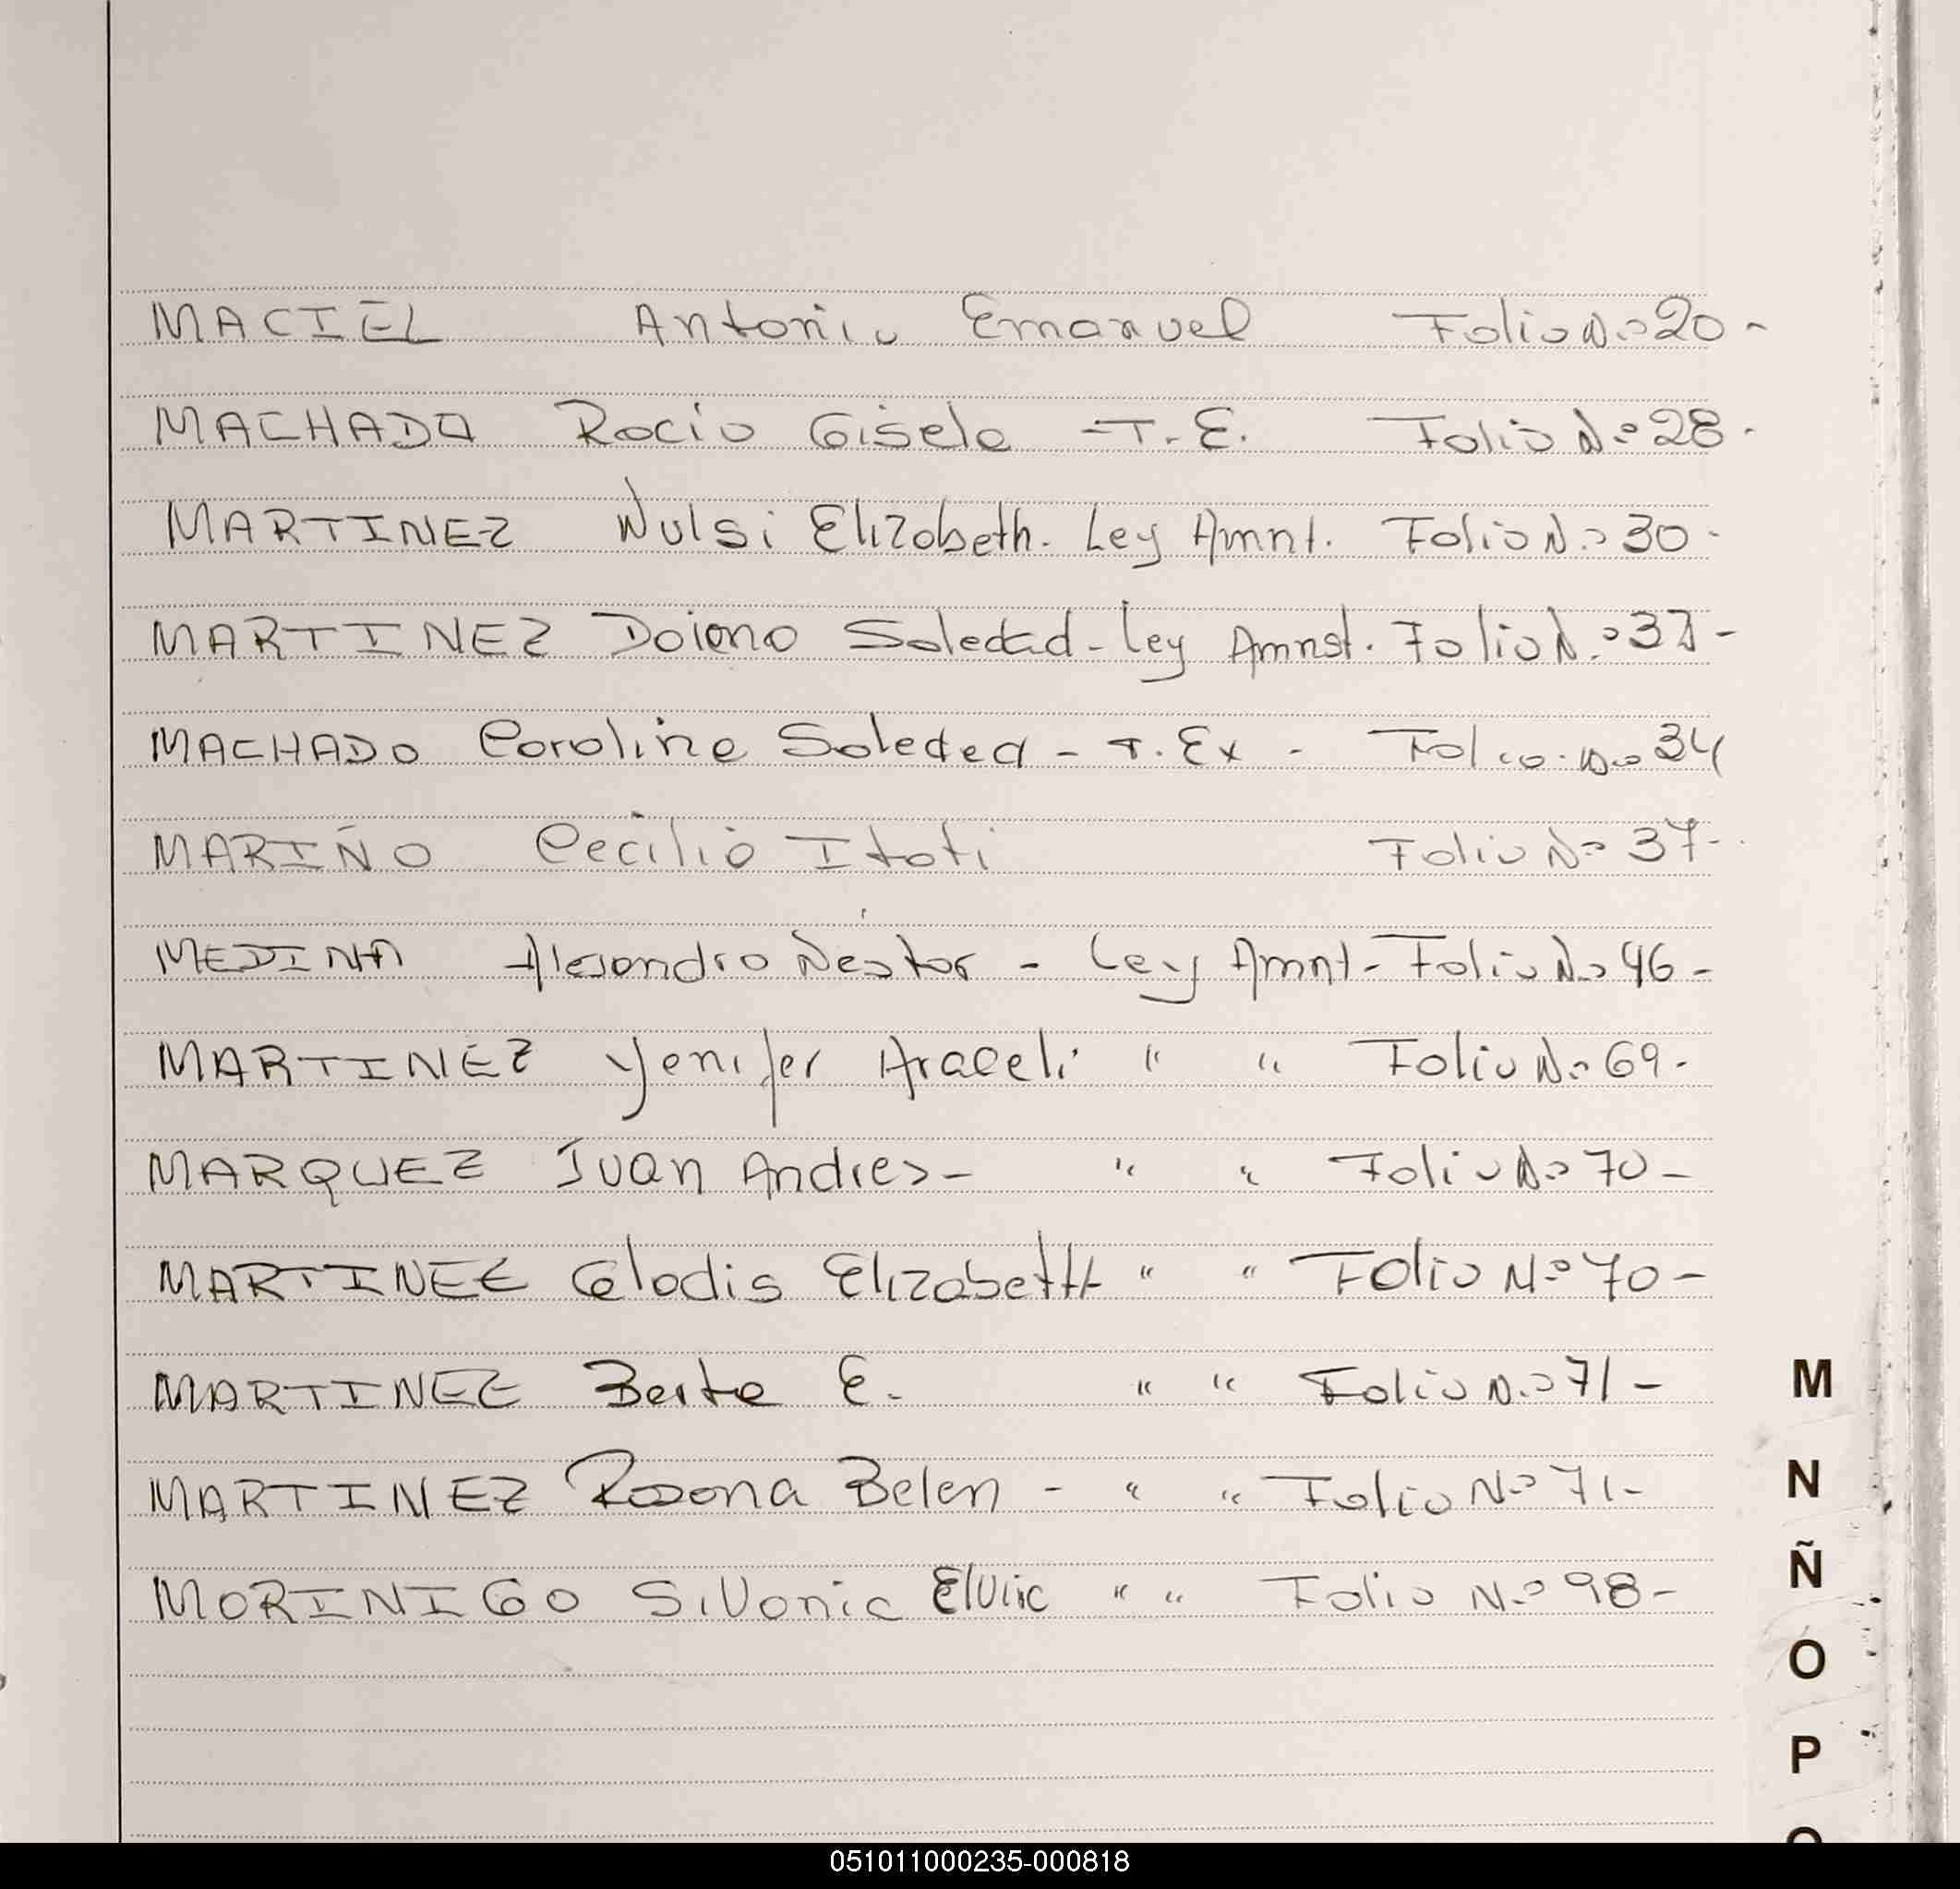 MACIEL Antonio Emanuel Folio N.o 20-
MACHADO Rocio Gisela -T.E. Folio N.o 28-
MARTINEZ Nulsi Elizabeth. Ley Amnt. Folio N.o 30-
MARTINEZ Daiana Soledad-Ley Amnst. Folio N.o
MACHADO Carolina Soledad - T. Ex - Folio. No 34
MARIÑO Cecilia Itati Folio No 37-
MEDINA Alejandro Néstor - Ley Amnt- Folio No 46-
MARTINEZ Yenifer Araceli " " Folio No 69-
MARQUEZ Juan Andres- " " Folio No 70-
MARTINEZ Gladis Elizabeth " " Folio No 70-
MARTINEZ Berta E. " " Folio N.o 71-
MARTINEZ Rosana Belen - " " Folio No 71-
MORINIGO Silvania Elvia " " Folio N.o 98-
M
N
Ñ
O
P
051011000235-000818